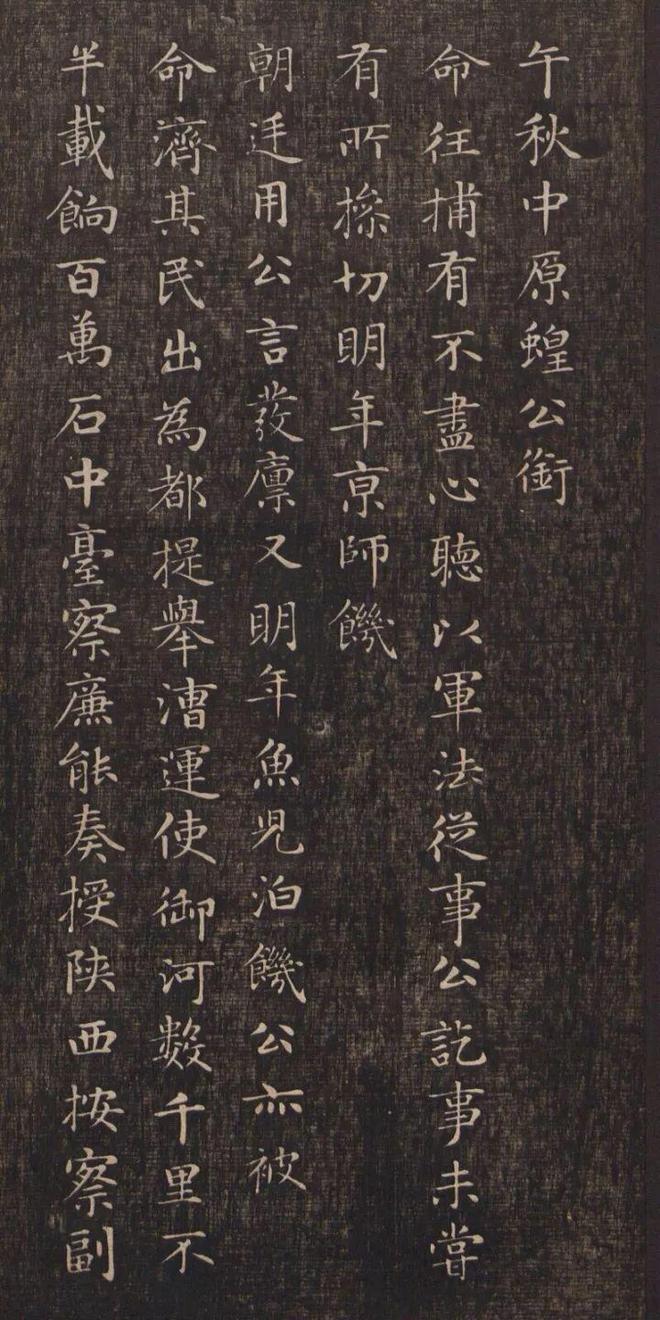 午秋中原蝗公銜
命往捕有不盡心聽以軍法從事公訖事未嘗
有所搽切明年京師饑
朝廷用公言發廪又明年魚児泊饑公亦被
命濟其民出為都提舉漕運使御河數千里不
半載餉百萬石中臺察廉能奏授陕西按察副